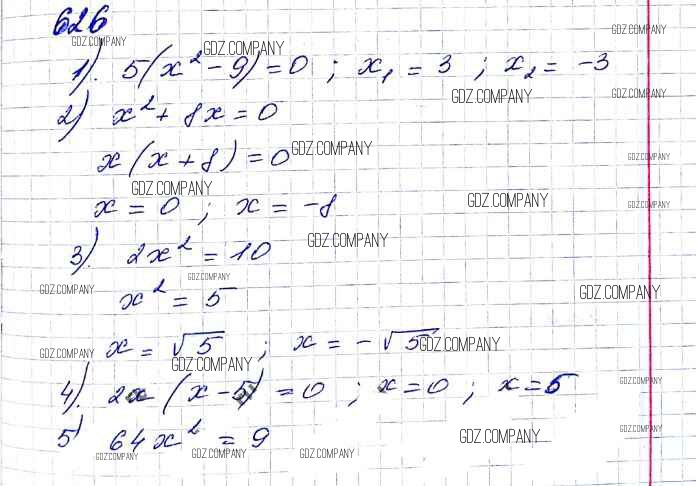 626
GDZ.COMPANY GDZ.COMPANY GDZ.COMPANY
1). 5(x² - 9) = 0 ; x₁ = 3 ; x₂ = -3
GDZ.COMPANY GDZ.COMPANY
2) x² + 8x = 0
x(x + 8) = 0 GDZ.COMPANY GDZ.COMPANY
GDZ.COMPANY GDZ.COMPANY GDZ.COMPANY
x = 0 ; x = -8
3). 2x² = 10 GDZ.COMPANY
GDZ.COMPANY GDZ.COMPANY GDZ.COMPANY
x² = 5
x = √5 ; x = -√5 GDZ.COMPANY
GDZ.COMPANY GDZ.COMPANY
4). 2x(x - 5) = 0 ; x = 0 ; x = 5 GDZ.COMPANY
5) 64x² = 9 GDZ.COMPANY GDZ.COMPANY
GDZ.COMPANY GDZ.COMPANY GDZ.COMPANY GDZ.COMPANY